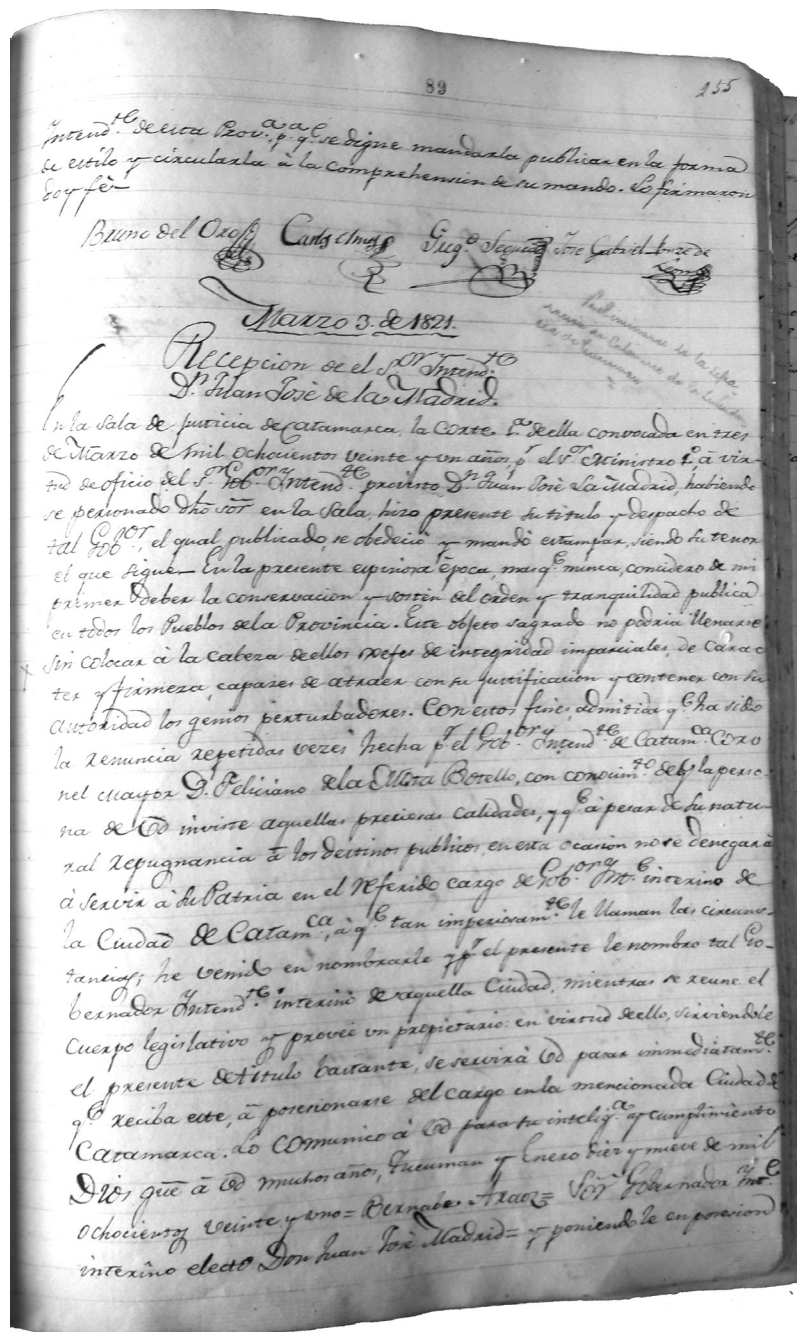 89
255
Intend.te de esta Prov.a p.a q.e se digne mandarla publicar en la forma
de estilo y circularla à la comprehension de su mando. Lo firmaron
doy fè
Bruno del Oro Carlos Greg.o José Gabriel de
Marzo 3. de 1821.
Preliminares de la
Recepcion de el S.or Intend.te
D.n Juan José de la Madrid.
En la Sala de Justicia de Catamarca, la Corte 1.a de ella convocada en tres
de Marzo de mil ochocientos veinte y un años, p.r el S.r Ministro 1.o, à vir-
tud de oficio del S.or Gob.or y Intend.te provisto D.n Juan José La Madrid, habiendo
se personado dho Sor en la Sala, hizo presente su titulo y despacho de
tal Gob.or, el qual publicado, se obedeciò y mandò estampar, siendo su tenor
el que sigue— En la presente espinosa època, mas q.e nunca, considero de mi
primer deber la conservacion y sosten del orden y tranquilidad publica
en todos los Pueblos de la Provincia. Este objeto sagrado no podria llenarse
sin colocar à la cabeza de ellos xefes de integridad imparciales, de carac
ter y firmeza, capazes de atraer con su justificacion y contener con su
autoridad los genios perturbadores. Con estos fines, admitida q.e ha sido
la renuncia repetidas vezes hecha p.r el Gob.or y Intend.te de Catam.ca Coro
nel mayor D. Feliciano de la Mota Botello, con conocim.to de q.e la perso-
na de Vd inviste aquellas preciosas calidades, y q.e à pesar de su natu-
ral repugnancia à los destinos publicos, en esta ocasion no se denegarà
à servir à su Patria en el referido cargo de Gob.or y Int.e interino de
la Ciudad de Catam.ca, à q.e tan imperiosam.te le llaman las circuns-
tancias; he venido en nombrarle y p.r el presente le nombro tal Go-
bernador Intend.te interino de aquella Ciudad, mientras se reune el
Cuerpo legislativo y proveé un propietario: en virtud de ello, sirviendole
el presente de titulo bastante, se servirà Vd pasar immediatam.te
q.e reciba este, à posesionarse del cargo en la mencionada Ciudad de
Catamarca. Lo comunico à Vd para su intelig.a y cumplimiento
Dios gue à Vd muchos años, Tucuman y Enero diez y nueve de mil
ochocientos veinte y uno= Bernabe Araoz= Sor Gobernador Int.e
interino electo Don Juan José Madrid= y poniendole en posesion